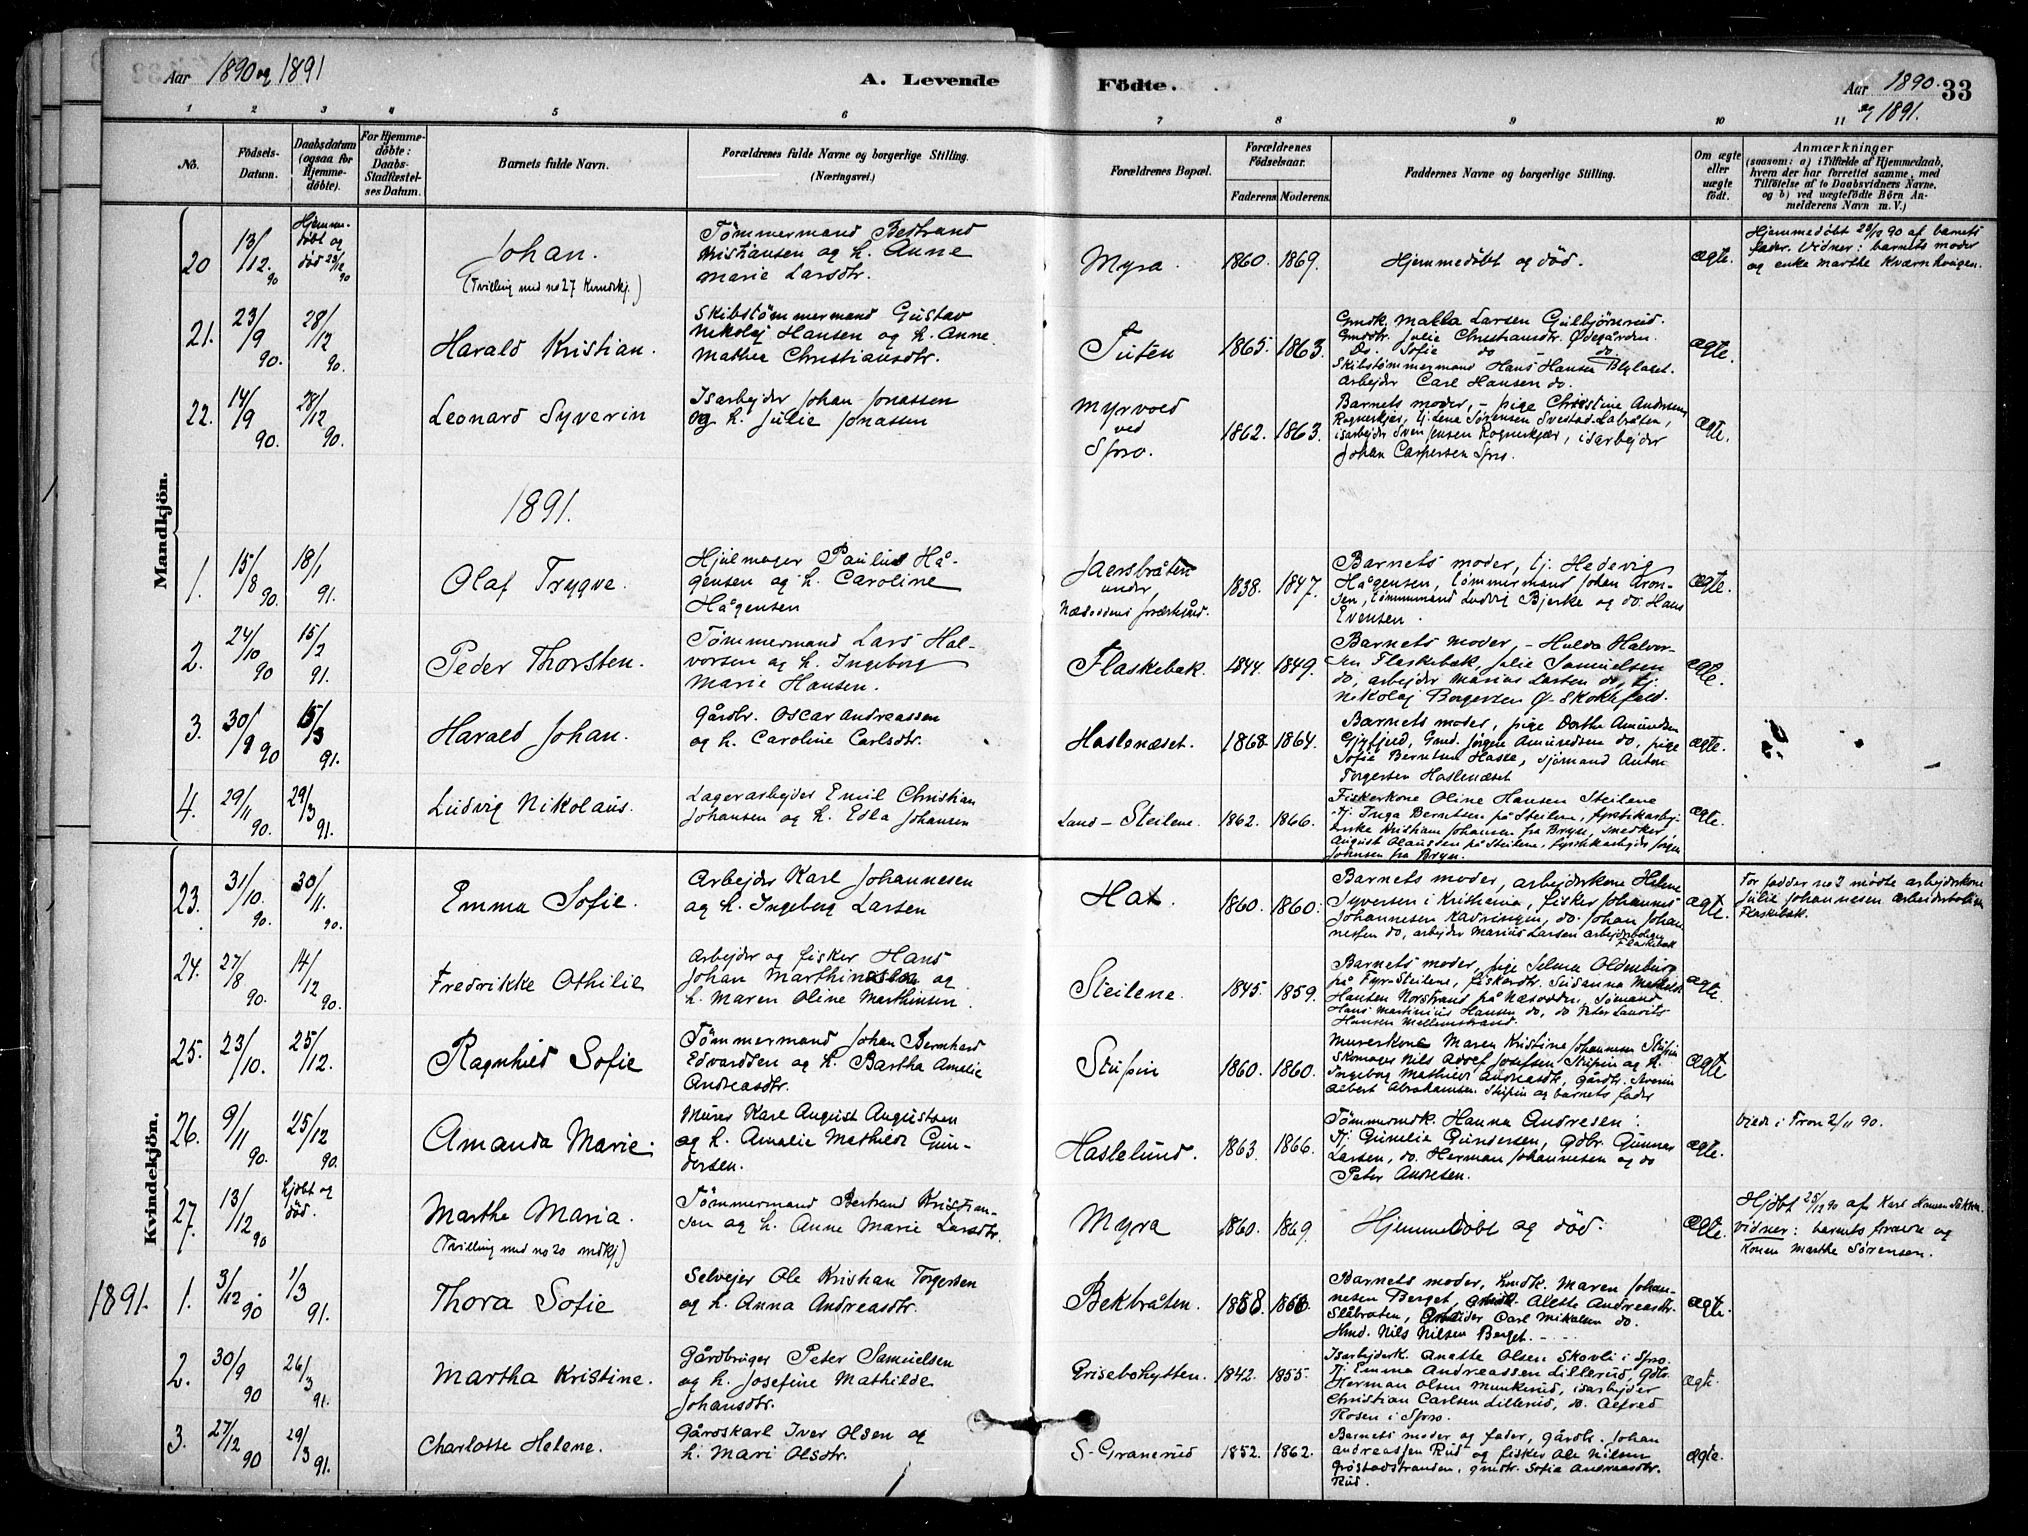 Aar 1890 og 1891
A. Levende
Födte.
Aar 1890. 33
og 1891.
1 2 3 4 5 6 7 8 9 10 11
No.
Födsels-
Datum.
Daabsdatum
(ogsaa for
Hjemme-
döbte).
For Hjemme-
döbte:
Daabs-
Stadfæstel-
ses Datum.
Barnets fulde Navn.
Forældrenes fulde Navne og borgerlige Stilling.
(Næringsvei.)
Forældrenes Bopæl.
Forældrenes
Födselsaar.
Faderens. Moderens.
Faddernes Navne og borgerlige Stilling.
Om ægte
eller
uægte
födt.
Anmærkninger
(saasom: a) i Tilfælde af Hjemmedaab,
hvem der har forrettet samme, med
Tilföielse af to Daabsvidners Navne,
og b) ved uægtefödte Börn An-
melderens Navn m. V.)
Mandkjön.
20 13/12 90 Hjemme-
döbt og
död 23/12
90
Johan.
(Tvilling med no 27 Kvindekj.)
Tömmermand Bertrand
Kristiansen og h. Anne
Marie Larsdtr.
Myra. 1860. 1869. Hjemmedöbt og död. ægte.
Hjemmedöbt 23/12 90 af barnets
fader. Vidner: barnets moder
og enke Marthe Kværnhaugen.
21. 23/9 90. 28/12 90. Harald Kristian.
Skibstömmermand Gustav
Nikolaj Hansen og h. Anne
Mathea Christiansdtr.
Tuten 1865. 1863.
Gmdk. Malla Larsen Gulbjörnrud.
Gmddtr. Julie Christiansdtr. Ödegården.
Do. Sofie do do.
Skibstömmermand Hans Hansen Blylaget.
Arbejder Carl Hansen do. ægte.
22. 14/9 90. 28/12 90. Leonard Syverin
Isarbejder Johan Jonassen
og h. Julie Jonassen
Myrvold
ved
Spro. 1862. 1863.
Barnets moder, - pige Christine Andersen
Rognerkjær, tj. Lene Sörensen Svestad-Labråten,
isarbejder Sven Jensen Rognerkjær, isarbejder
Johan Caspersen Spro. ægte.
1891.
1. 15/8 90. 18/1 91. Olaf Trygve.
Hjulmager Paulus Hå-
gensen og h. Caroline
Hågensen
Jaersbråten
under
Næsoddens præstegård. 1838. 1847.
Barnets moder, tj. Hedevig
Hågensen, tömmermand Johan Aron-
sen, tömmermand Ludvig Bjerke og do. Hans
Evensen. ægte.
2. 24/10 90 15/2 91. Peder Thorsten.
Tömmermand Lars Hal-
vorsen og h. Ingeborg
Marie Hansen.
Flaskebæk. 1844. 1849.
Barnets moder, - Hulda Halvor-
sen Flaskebæk, Julie Samuelsen
do, arbejder Marius Larsen do, tj.
Nikolaj Borgersen Ö. Skoklefald. ægte.
3. 30/9 90 15/3 91. Harald Johan.
Gårdbr. Oscar Andreassen
og h. Caroline Carlsdtr.
Haslenæset. 1868. 1864.
Barnets moder, pige Dorthe Amundsen
Gjyfjeld, Gmd. Jörgen Amundsen do, pige
Sofie Berntsen Hasle, sjömand Anton
Torgersen Haslenæset ægte.
4. 29/11 90. 29/3 91. Ludvig Nikolaus.
Lagerarbejder Emil Christian
Johansen og h. Edla Johansen
Land-Steilene. 1862. 1866.
Fiskerkone Oline Hansen Steilene
tj. Inga Berntsen på Steilene, fyrstikarbej-
derske Kristiane Johansen fra Bryn, snedker
August Olaussen på Steilene, fyrstikarbejder Jörgen
Johansen fra Bryn. ægte.
Kvindekjön.
23. 31/10. 90. 30/11. 90. Emma Sofie.
Arbejder Karl Johannesen
og h. Ingeborg Larsen
Hat. 1860. 1860.
Barnets moder, arbejderkone Helene
Syversen i Kristiania, fisker Johannes
Johannesen Kavringen, do. Johan Johan-
nessen do, arbejder Marius Larsen arbejderbolig
Flaskebæk ægte.
For fadder no 2 mödte arbejderkone
Julie Johannesen arbeiderboligen
Flaskebæk.
24. 27/8 90. 14/12 90. Fredrikke Othilie
Arbejder og fisker Hans
Johan Marthinsen og
h. Maren Oline Marthinsen.
Steilene. 1845. 1859.
Barnets moder, pige Selma Oldenburg
på Fyr-Steilene, fiskerdtr. Susanna Mathilde
Hansen Norstrand på Næsodden, Sömand
Hans Martinius Hansen do, do Peter Laurits
Hansen Mellemstrand. ægte.
25. 23/10. 25/12. Ragnhild Sofie
Tömmermand Johan Bernhard
Edvardsen og h. Bartha Amalie
Andreasdtr.
Stupin 1860. 1860.
Murerkone Maren Kristine Johannesen Stupin
Skomager Nils Adolf Josefsen Stupin og h.
Ingeborg Mathilde Andreasdtr, gårdbr. Severin
Albert Abrahamsen Stupin og barnets fader ægte
26. 9/11 90. 25/12 90. Amanda Marie.
Murer Karl August Augustsen
og h. Amalie Mathilde Gun-
dersen.
Haslelund. 1863. 1866.
Tömmermdk. Hanna Andresen.
Tj. Gunelia Gundersen, Gdbr. Gunnar
Larsen, do. Herman Johannesen og do
Peter Andresen. ægte.
Viede i Tron 2/11 90.
27. 13/12 90 hjdöbt og
död.
Marthe Maria.
(Tvilling med no 20 mdkj.)
Tömmermand Bertrand Kristian-
sen og h. Anne Marie Larsdtr.
Myra 1860. 1869. Hjemmedöbt og död. ægte.
Hjdöbt 25/12 90 af Karl Hansen
vidner: barnets fader og
konen Marthe Sörensen.
1891. 1. 3/12 90 1/3 91. Thora Sofie
Selvejer Ole Kristian Torgersen
og h. Anna Andreasdtr.
Bekbråten. 1858. 1860.
Barnets moder, hmdk. Maren Johan-
nesen Berget, Alette Andreasdtr.
Slåbråten, arbeider Carl Mikalsen do.
Hmd. Nils Nilsen Berget. ægte.
2. 30/9 90 26/3 91. Martha Kristine.
Gårdbruger Peter Samuelsen
og h. Josefine Mathilde
Johansdtr.
Griseböhytten. 1842. 1855.
Isarbejderk. Anette Olsen Skovli i Spro.
Tj. Emma Andreassen Lillerud, Gdbr.
Herman Olsen Munkerud, isarbejder
Christian Carlsen Lillerud, do. Alfred
Rosen i Spro. ægte.
3. 27/12 90 29/3 91. Charlotte Helene.
Gårdskarl Iver Olsen og
h. Mari Olsdtr.
S-Granerud 1852. 1862.
Barnets moder og fader, gårdbr. Johan
Andreassen Rud og fisker Ole Nilsen
Gröstadstranden, gmdtr. Sofie Andreasdtr.
Rud. ægte.